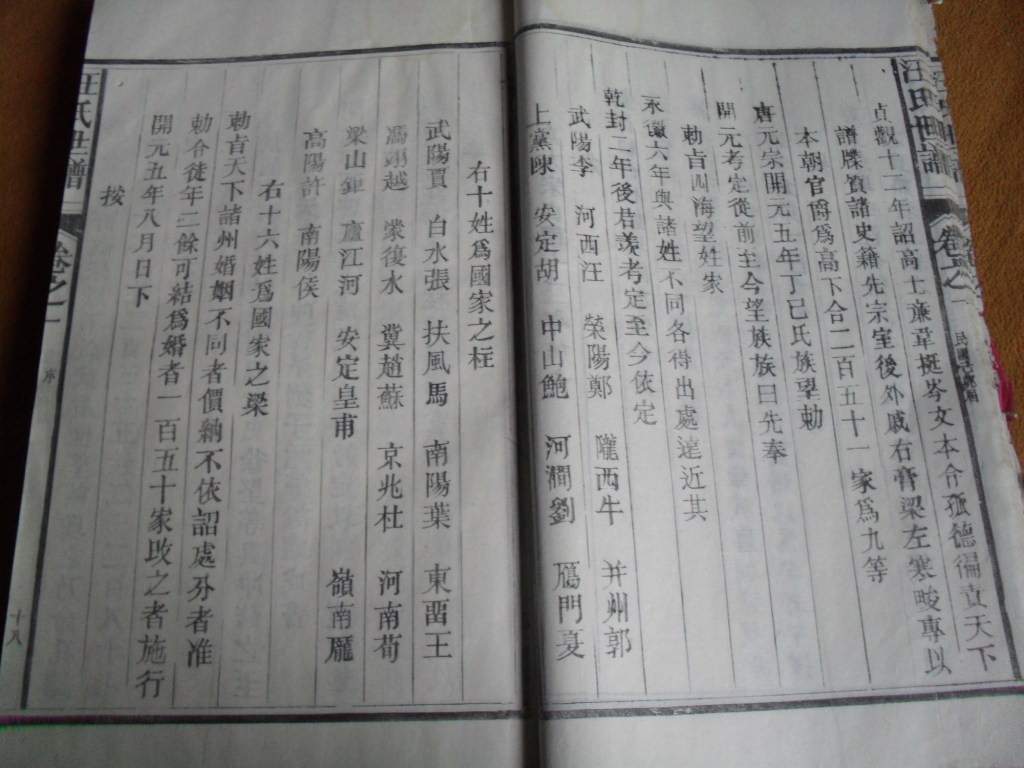 汪氏世譜
卷之一
貞觀十二年詔高士廉韋挺岑文本令狐德徧責天下
譜牒質諸史籍先宗室後外戚右膏梁左寒畯專以
本朝官爵爲高下合二百五十一家爲九等
唐元宗開元五年丁己氏族望勅
開元考定從前至今望族族曰先奉
勅旨四海望姓家
永徽六年與諸姓不同各得出處遠近其
乾封二年後君羨考定至今依定
武陽李 河西汪 滎陽鄭 隴西牛 并州郭
上黨陳 安定胡 中山鮑 河澗劉 鴈門夏
右十姓爲國家之枉
武陽賈 白水張 扶風馬 南陽葉 東畱王
馮翊越 裳復水 冀趙蘇 京兆杜 河南荀
梁山鉅 廬江河 安定皇甫 嶺南厲
高陽許 南陽侯
右十六姓爲國家之梁
勅旨天下諸州婚姻不同者價納不依詔處分者准
勅令徒年二餘可結爲婚者一百五十家敗之者施行
開元五年八月日下
按
汪氏世譜
卷之一
序
十八